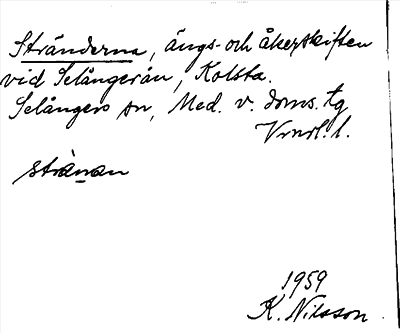 Stränderna, ängs- och åkerskiften
vid Selångerån, Kolsta.
Selångers sn, Med. v. doms. tg
Vrnrl. l.
strànan
1959
K. Nilsson